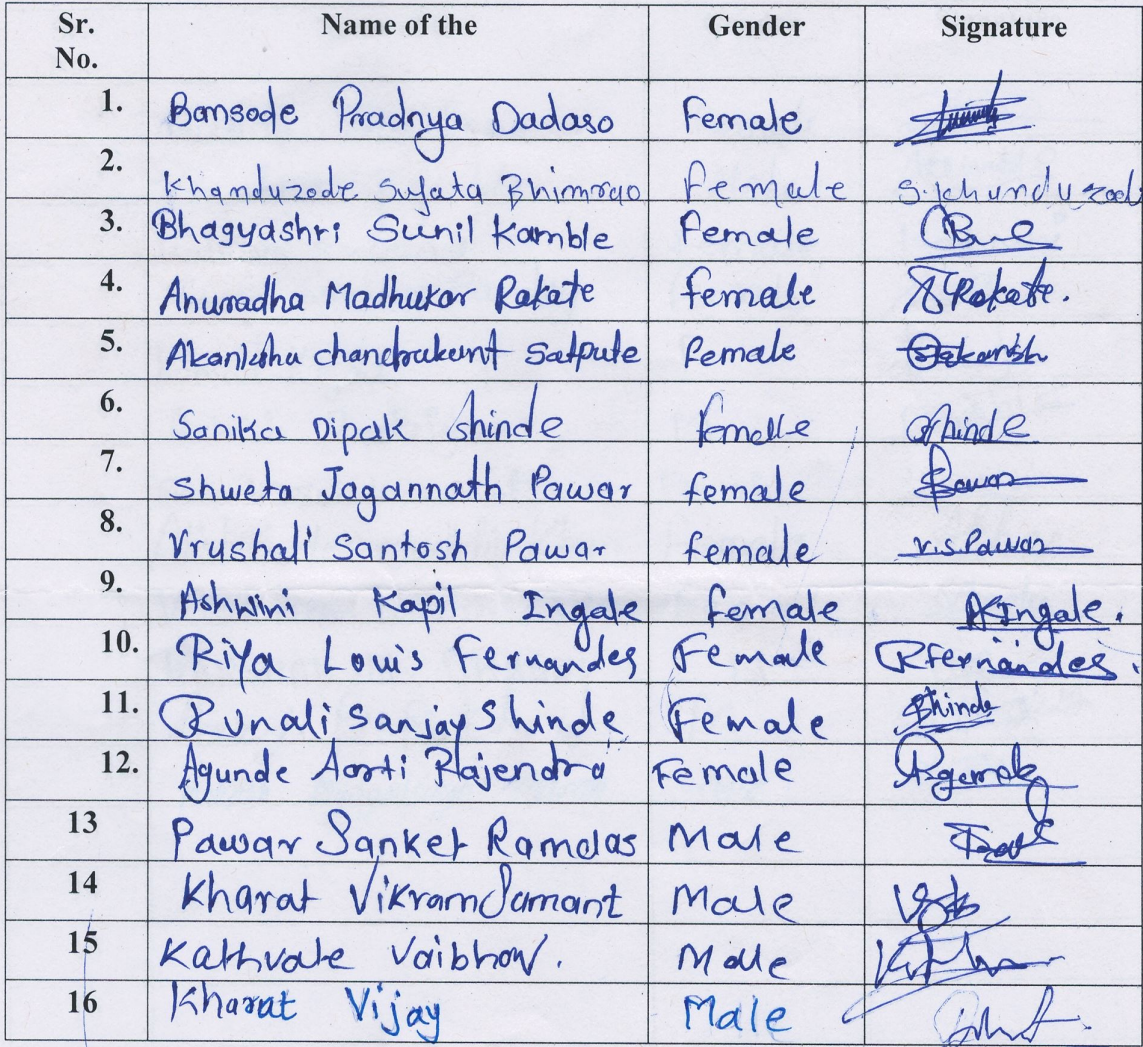 Sr. No. Name of the Gender Signature
1. Bansode Pradnya Dadaso Female
2. Khanduzode Sujata Bhimrao Female
3. Bhagyashri Sunil Kamble Female
4. Anuradha Madhukar Rakate female Rakate.
5. Akanksha chandrakant Satpute female
6. Sanika Dipak Shinde female Shinde
7. Shweta Jagannath Pawar female Pawar
8. Vrushali Santosh Pawar female V.S.Pawar
9. Ashwini Kapil Ingale female AKIngale.
10. Riya Louis Fernandes Female RFernandes.
11. Runali Sanjay Shinde Female Shinde
12. Agunde Aarti Rajendra Female
13 Pawar Sanket Ramdas Male
14 Kharat Vikram Samant Male
15 Kathvate Vaibhav. Male
16 Kharat Vijay Male